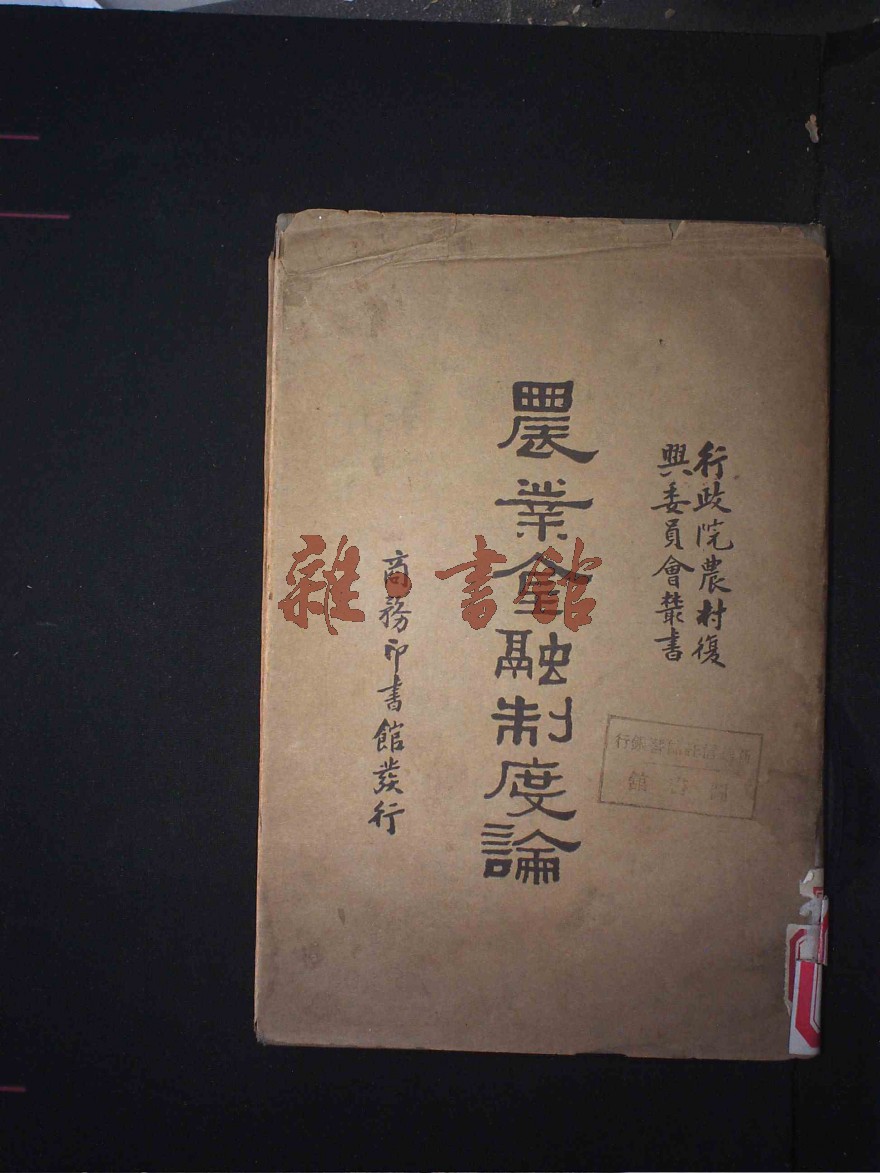 行政院農村復
興委員會叢書
農業金融制度論
商務印書館發行
雜·書館
圖書館